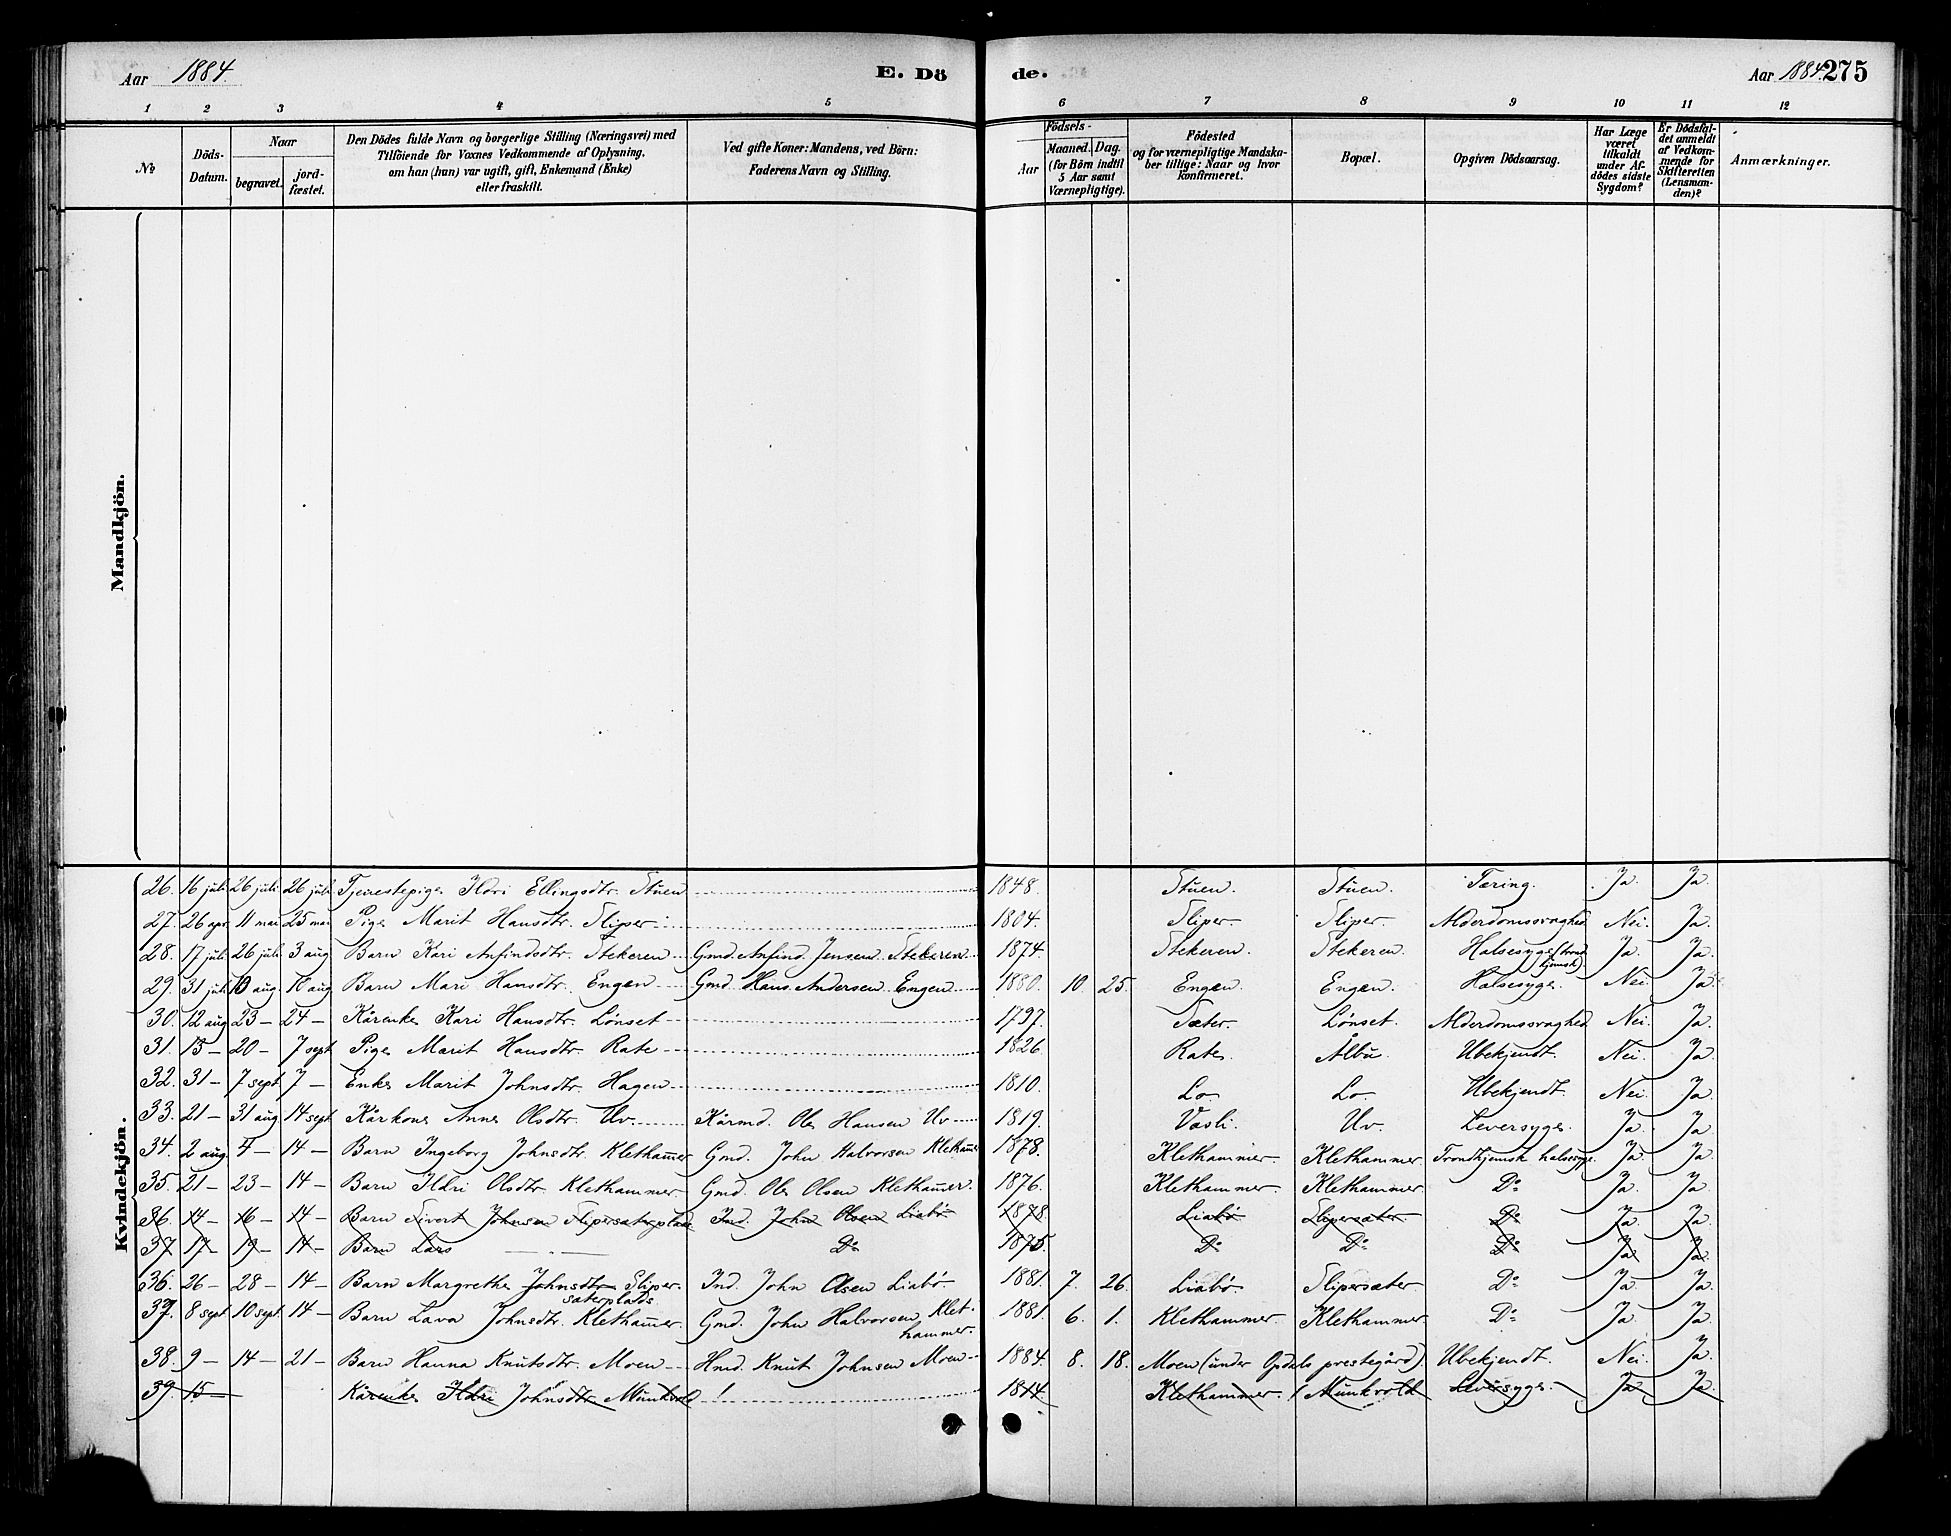 Aar 1884. E. Dö de. Aar 1884. 275
1 2 3 4 5 6 7 8 9 10 11 12
No
Döds-Datum.
Naar
begravet.
jord-fæstet.
Den Dödes fulde Navn og borgerlige Stilling (Næringsvei) med
Tilföiende for Voxnes Vedkommende af Oplysning.
om han (hun) var ugift, gift, Enkemand (Enke)
eller fraskilt.
Ved gifte Koner: Mandens, ved Börn:
Faderens Navn og Stilling.
Födsels-
Aar
Maaned. Dag.
(for Börn indtil
5 Aar samt
Værnepligtige).
Födested
og for værnepligtige Mandska-
ber tillige: Naar og hvor
konfirmeret.
Bopæl.
Opgiven Dödsaarsag.
Har Læge
været
tilkaldt
under Af-
dödes sidste
Sygdom?
Er Dödsfal-
det anmeldt
af Vedkom-
mende for
Skifteretten
(Lensman-
den)?
Anmærkninger.
Mandkjön.
Kvindekjön.
26. 16 juli 26 juli 26 juli Tjenestepige Ildri Ellingsdtr. Stuen 1848. Stuen. Stuen. Tæring. Ja. Ja.
27. 26 apr. 11 mai 25 mai Pige Marit Hansdtr. Sliper 1804. Sliper. Sliper. Alderdomssvaghed Nei. Ja.
28. 17 juli 26 juli 3 aug Barn Kari Anfindsdtr. Stekeren Gmd. Anfind Jensen Stekeren 1874. Stekeren. Stekeren. Halsesyge (trond-
hjemsk) Ja. Ja.
29. 31 juli 10 aug. 10 aug. Barn Mari Hansdtr. Engen Gmd Hans Andersen Engen 1880. 10. 25. Engen. Engen. Halsesyge. Nei. Ja.
30. 12 aug 23 - 24 - Kårenke Kari Hansdtr. Lønset 1797. Sæter. Lønset. Alderdomssvaghed Nei. Ja.
31. 13 - 20 - 7 sept Pige Marit Hansdtr. Rate 1826. Rate. Ålbu. Ubekjendt. Nei. Ja.
32. 31 - 7 sept. 7 - Enke Marit Johnsdtr. Hagen 1810. Lo. Lo. Ubekjendt. Nei. Ja.
33. 21 - 31 aug 14 sept. Kårkone Anne Olsdtr. Uv. Kårmd. Ole Hansen Uv 1819. Vasli. Uv. Leversyge. Ja. Ja.
34. 2 aug. 4 - 14 - Barn Ingeborg Johnsdtr. Klethammer Gmd. John Halvorsen Klethammer 1878. Klethammer. Klethammer. Trondhjemsk halsesyge. Ja. Ja.
35. 21 - 23 - 14 - Barn Ildri Olsdtr. Klethammer Gmd. Ole Olsen Klethammer. 1876. Klethammer. Klethammer. Do Ja. Ja.
36. 14 - 16 - 14 - Barn Sivert Johnsen Slipersæterplads Ind. John Olsen Liabø 1878. Liabø Slipersæter Do Ja. Ja.
37 17 - 19 - 14 - Barn Lars Do 1875. Do Do Do Ja Ja.
36. 26 - 28 - 14 - Barn Margrethe Johnsdtr. Sliper-
sæterplads Ind. John Olsen Liabø 1881. 7. 26. Liabø. Slipersæter. Do Ja. Ja.
37. 8 sept 10 sept. 14 - Barn Lava Johnsdtr. Klethammer. Gmd. John Halvorsen Klet-
hammer. 1881. 6. 1. Klethammer. Klethammer Do Ja. Ja.
38. 9 - 14 - 21 - Barn Hanna Knutsdtr. Moen Hmd. Knut Johnsen Moen 1884. 8. 18. Moen (under Opdals prestegård). Ubekjendt. Nei. Ja.
39. 15 - Kårenke Ildri Johnsdtr. Munkvold 1814 Klethammer. Munkvold Leversyge. Ja Ja.